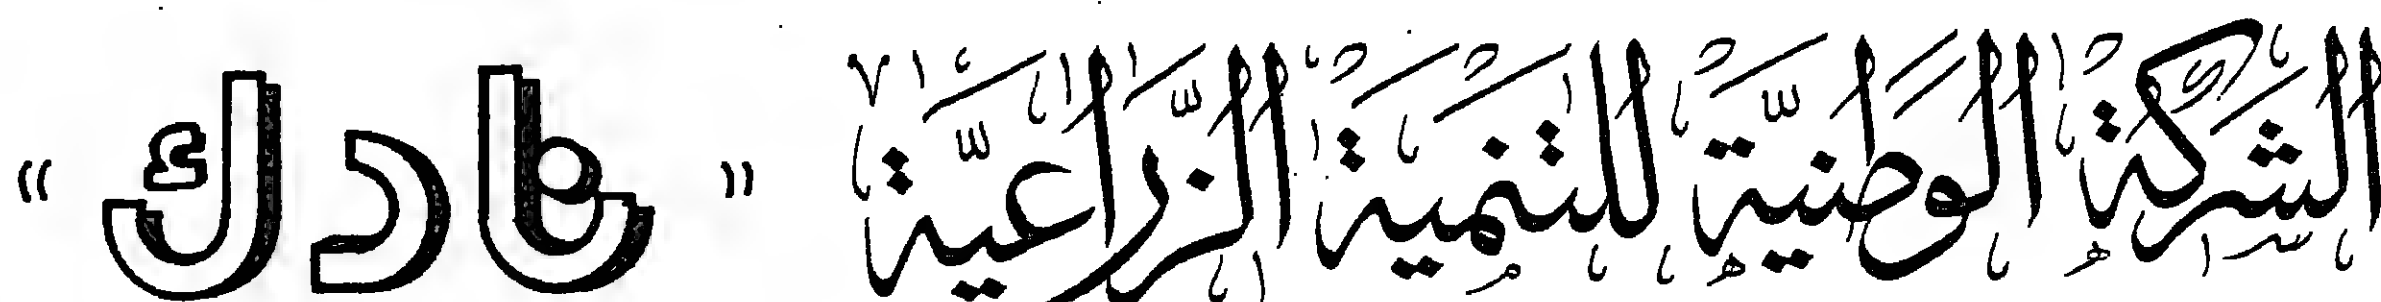 الشركة الوطنيّة للتنمية الزّراعيّة «نادك»